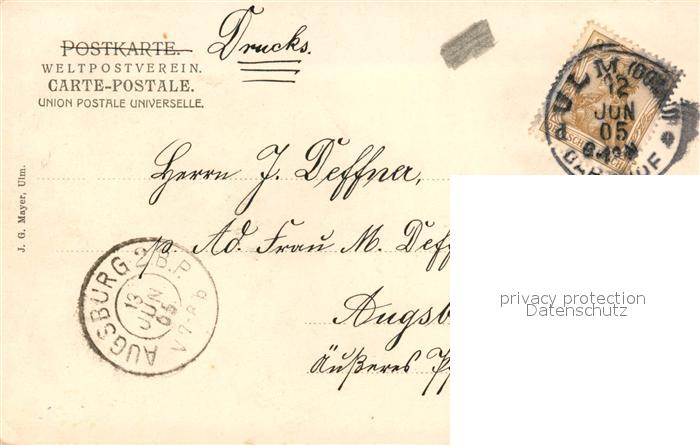 POSTKARTE. Drucks.
WELTPOSTVEREIN.
CARTE-POSTALE.
UNION POSTALE UNIVERSELLE.
ULM (DONAU)
12
JUN
05
BAHNHOF
Herrn J. Deffner,
p. Ad. Frau M. Deff
Augsb
Äußeres Pf
J. G. Mayer, Ulm.
AUGSBURG 2 B.P.
13
JUN
05
privacy protection
Datenschutz